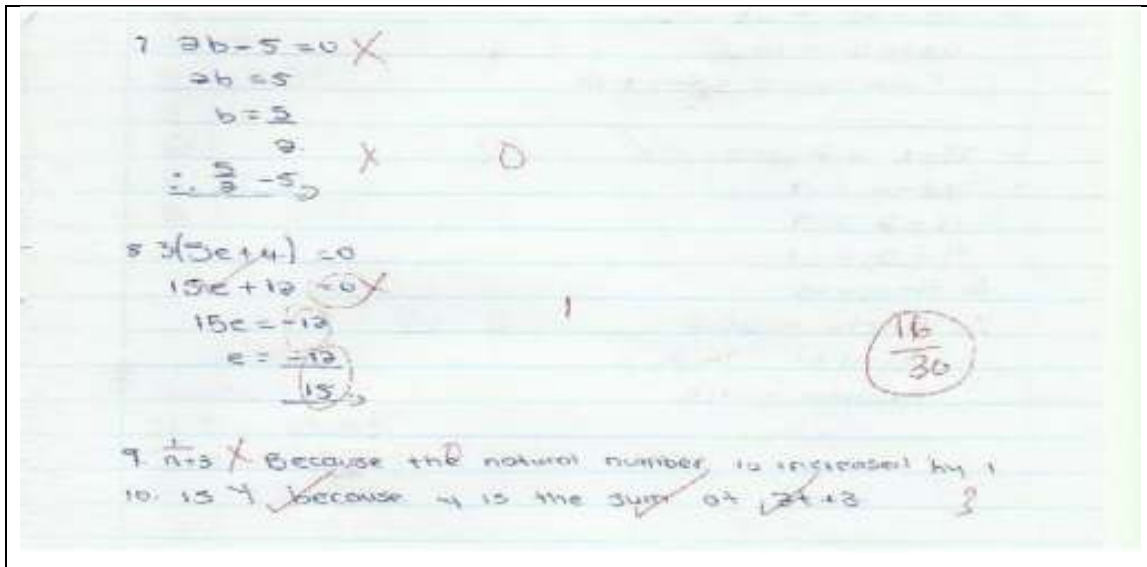 7 2b - 5 = 0 X
2b = 5
b = 5
2
∴ 5/2 - 5
X 0
8 3(5e + 4) = 0
15e + 12 = 0 X
15e = -12
1
e = -12
15
16
30
9. 1/n+3 X Because the natural number is increased by 1
10. is y because y is the sum of 2t + 3 3